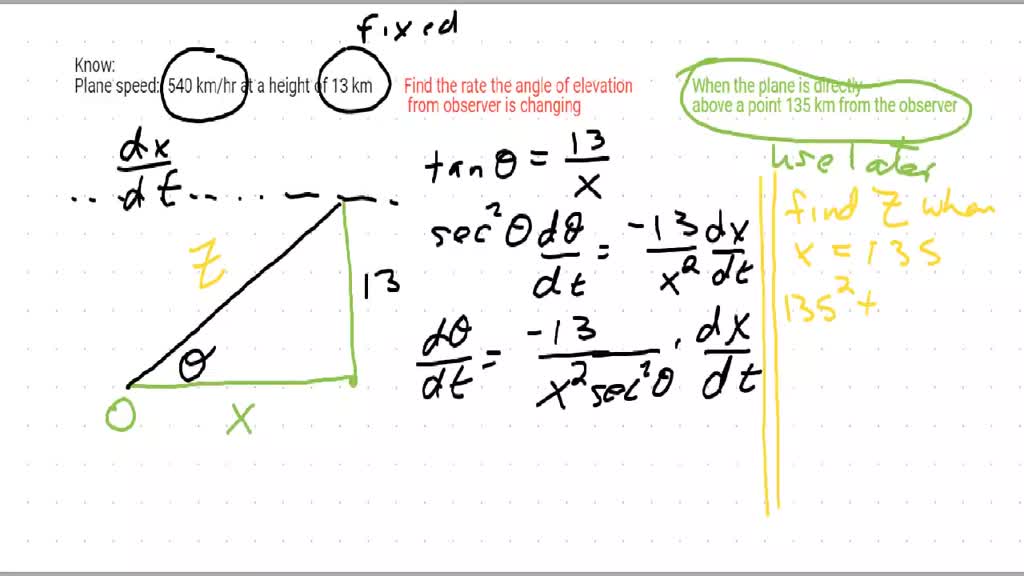 fixed
Know:
Plane speed: 540 km/hr at a height of 13 km
Find the rate the angle of elevation
from observer is changing
When the plane is directly
above a point 135 km from the observer
use later
dx/dt
tan θ = 13/x
sec² θ dθ/dt = -13/x² dx/dt
dθ/dt = -13/(x² sec² θ) · dx/dt
find Z when
x = 135
135² +
Z
13
θ
O
X